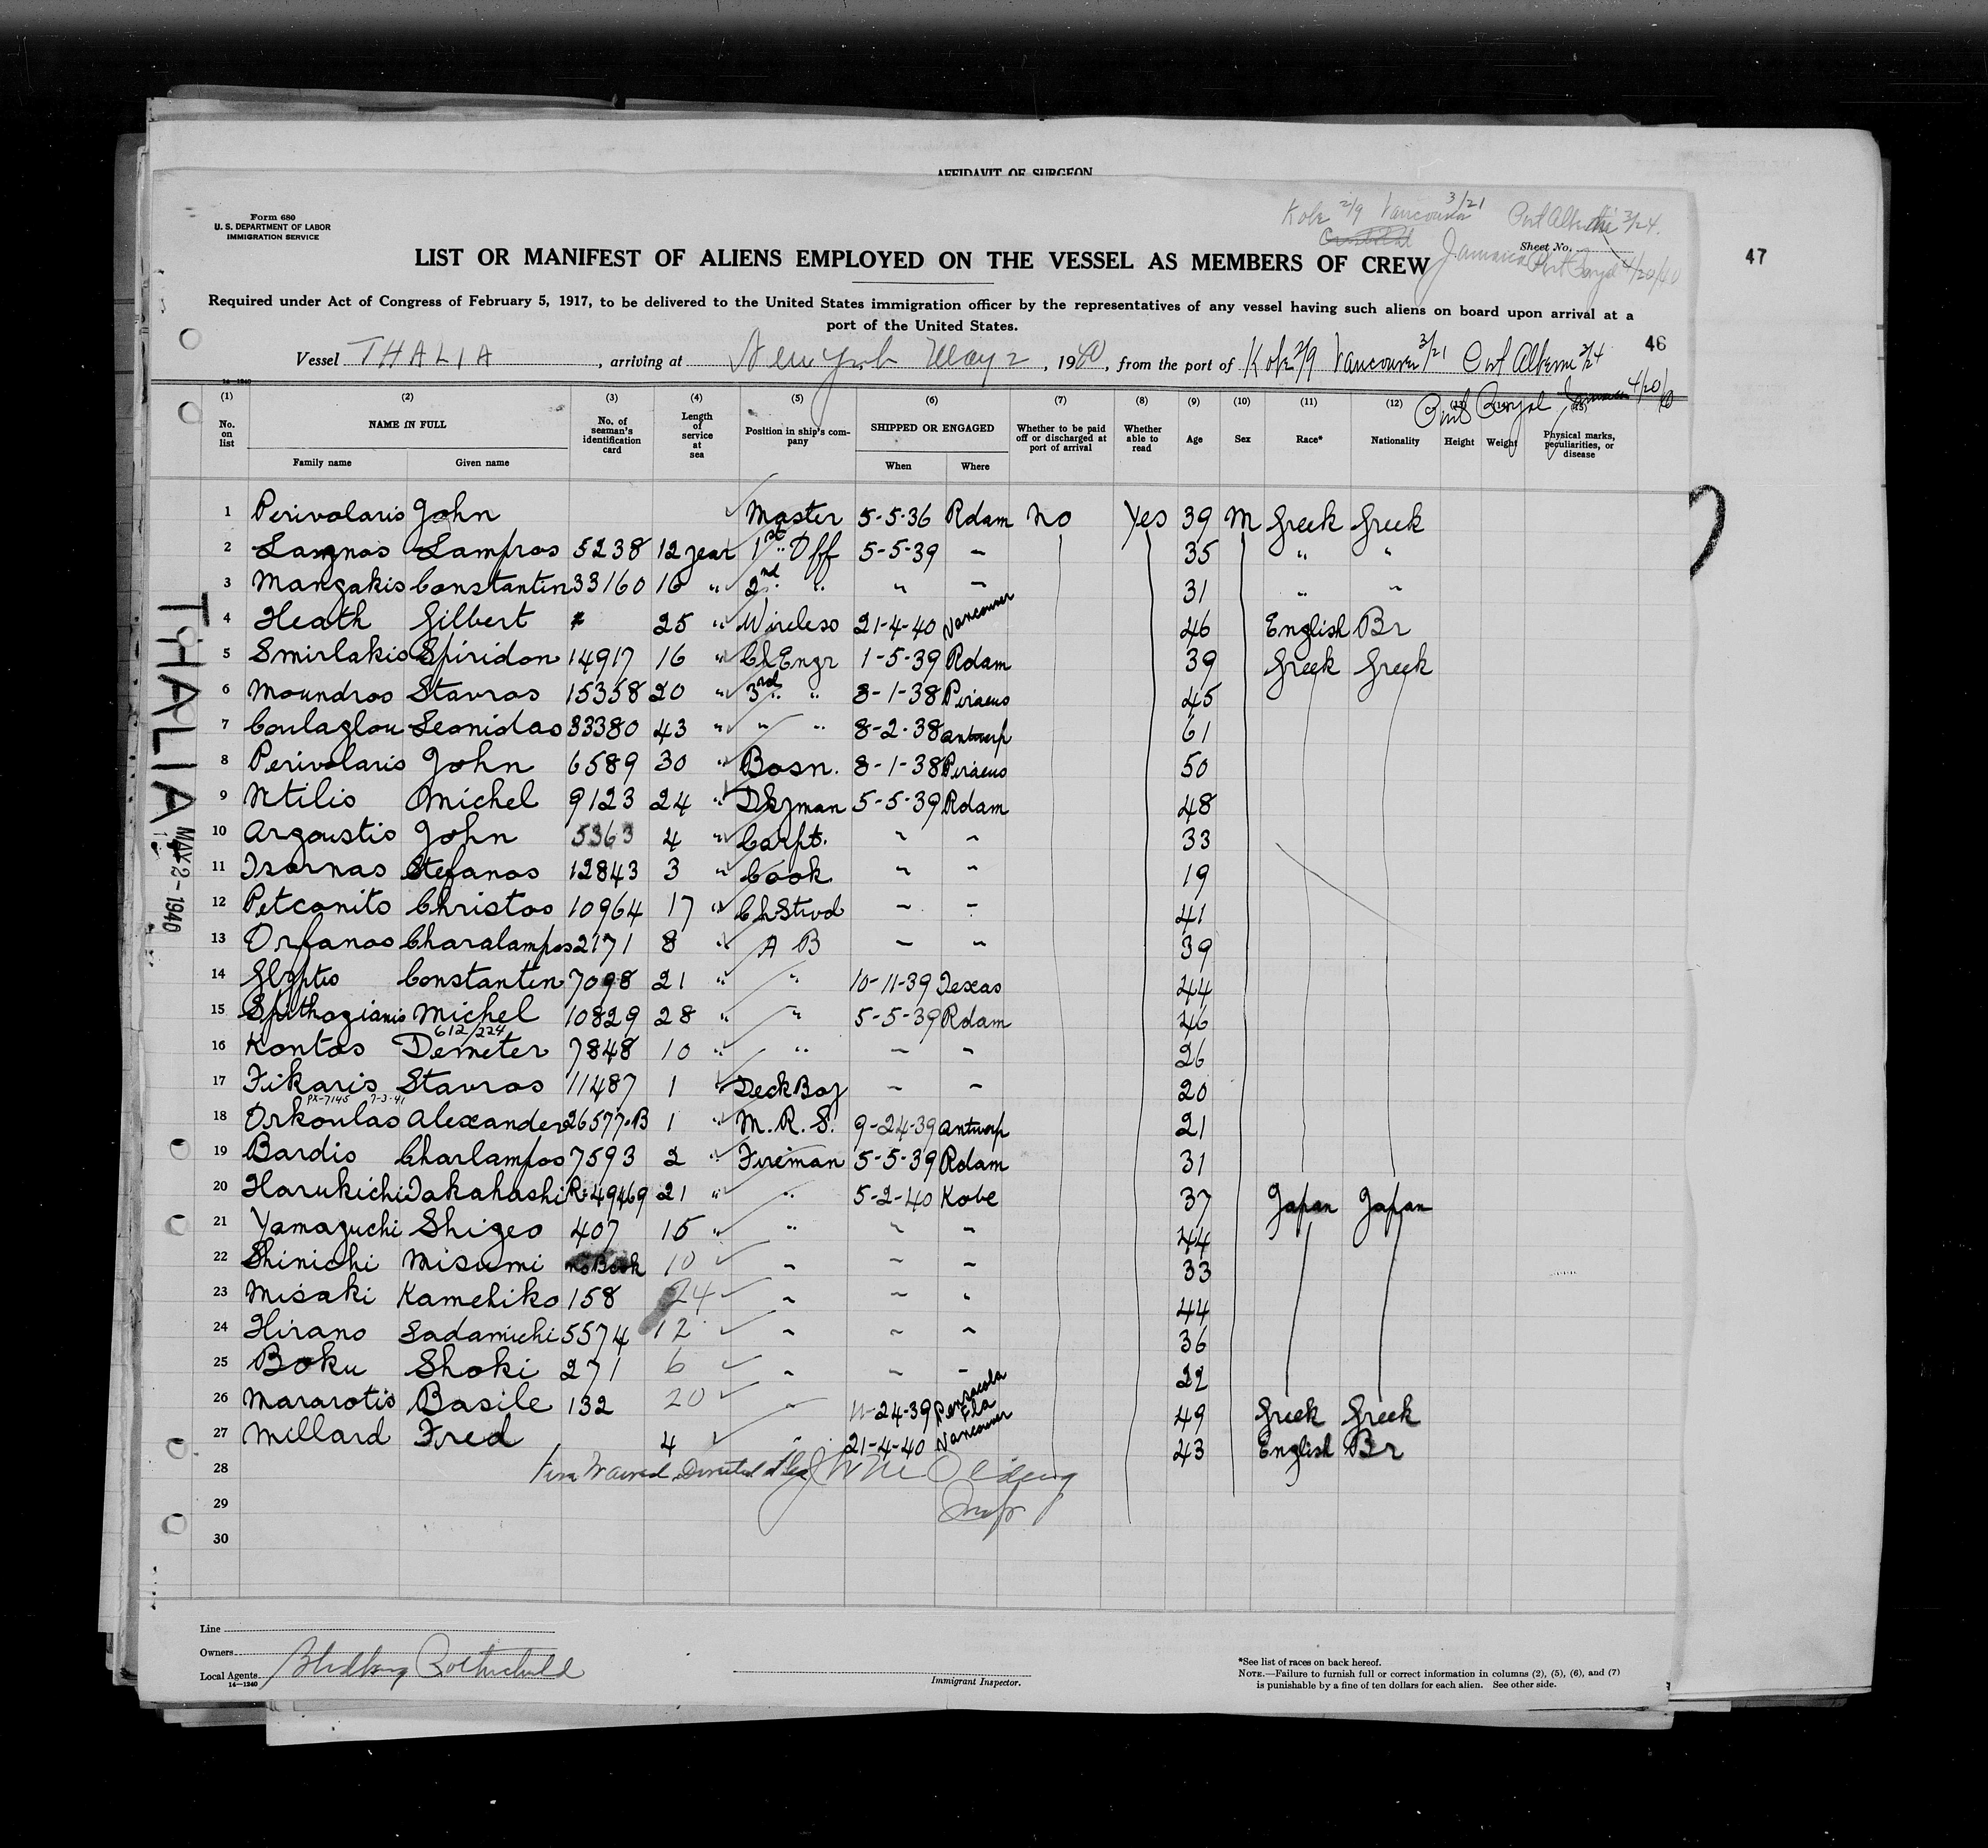 AFFIDAVIT OF SURGEON
Form 680
U. S. DEPARTMENT OF LABOR
IMMIGRATION SERVICE
Kobe 2/9 Vancouver 3/21 Port Alberni 3/24.
Sheet No.
LIST OR MANIFEST OF ALIENS EMPLOYED ON THE VESSEL AS MEMBERS OF CREW
Jamaica Port Royal 4/20/40
47
Required under Act of Congress of February 5, 1917, to be delivered to the United States immigration officer by the representatives of any vessel having such aliens on board upon arrival at a
port of the United States.
46
Vessel THALIA, arriving at New York May 2, 1940, from the port of Kobe 2/9 Vancouver 3/21 Port Alberni 3/24
Port Royal Jamaica 4/20/40
14—1240
(1) (2) (3) (4) (5) (6) (7) (8) (9) (10) (11) (12) (13) (14) (15)
No. on list NAME IN FULL No. of seaman's identification card Length of service at sea Position in ship's company SHIPPED OR ENGAGED Whether to be paid off or discharged at port of arrival Whether able to read Age Sex Race* Nationality Height Weight Physical marks, peculiarities, or disease
Family name Given name When Where
1 Perivolaris John Master 5-5-36 Rdam No Yes 39 M Greek Greek
2 Lampros 5238 12 year 1st Off 5-5-39 " 35 " "
3 Mangakis Constantin 33160 16 " 2nd " " " 31 " "
4 Heath Gilbert 25 " Wireless 21-4-40 Vancouver 46 English Br
5 Smirlakis Spiridon 14917 16 " Ch Engr 1-5-39 Rdam 39 Greek Greek
6 Moundros Stavros 15358 20 " 3rd " 8-1-38 Piraeus 45
7 Coulaglou Leonidas 33380 43 " " " 8-2-38 Antwerp 61
8 Perivolaris John 6589 30 " Bosn. 8-1-38 Piraeus 50
9 Ntilis Michel 9123 24 " Dkyman 5-5-39 Rdam 48
10 Argoustis John 5363 4 " Carpt. " " 33
11 Tsornas Stefanos 12843 3 " Cook " " 19
12 Petconits Christos 10964 17 " Ch Stwd " " 41
13 Orfanos Charalampos 2171 8 " A B " " 39
14 Glyptis Constantin 7098 21 " " 10-11-39 Texas 44
15 Spithogianis Michel 10829 28 " " 5-5-39 Rdam 46
612/224
16 Kontos Demeter 7848 10 " " " " 26
17 Fikaris Stavros 11487 1 " Deck Boy " " 20
PX-7145 7-3-41
18 Orkoulas Alexander 26577-B 1 " M. R. S. 9-24-39 Antwerp 21
19 Bardis Charlampos 7593 2 " Fireman 5-5-39 Rdam 31
20 Harukichi Takahashi R:49469 21 " " 5-2-40 Kobe 37 Japan Japan
21 Yamaguchi Shigeo 407 15 " " " " 44
22 Shinichi Misumi No Book 10 " " " 33
23 Misaki Kamehiko 158 24 " " " 44
24 Hirano Sadamichi 5574 12 " " " 36
25 Boku Shoki 271 6 " " " 22
26 Mararotis Basile 132 20 " 11-24-39 Pensacola Fla 49 Greek Greek
27 Millard Fred 4 " 21-4-40 Vancouver 43 English Br
28
29 Insp.
30
THALIA
MAY 2-1940
Line
Owners
Local Agents Rothschild
14—1240
Immigrant Inspector.
*See list of races on back hereof.
NOTE.—Failure to furnish full or correct information in columns (2), (5), (6), and (7)
is punishable by a fine of ten dollars for each alien. See other side.